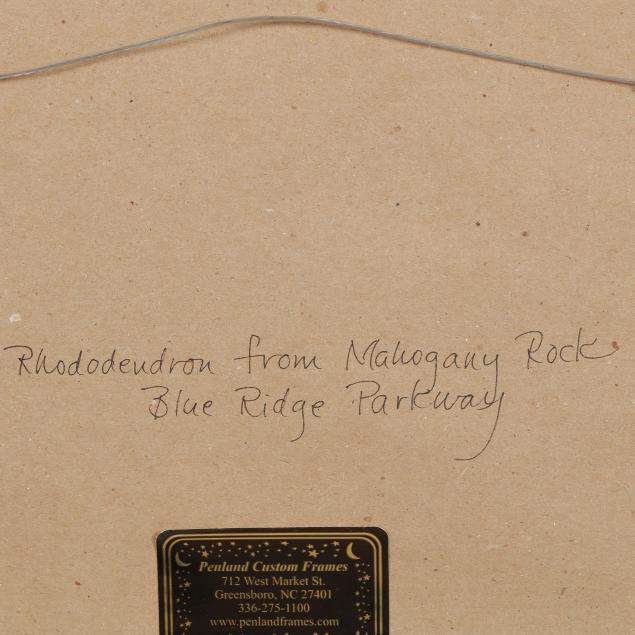 Rhododendron from Mahogany Rock
Blue Ridge Parkway
Penland Custom Frames
712 West Market St.
Greensboro, NC 27401
336-275-1100
www.penlandframes.com